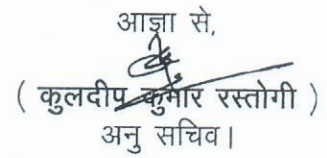 आज्ञा से,
( कुलदीप कुमार रस्तोगी )
अनु सचिव।